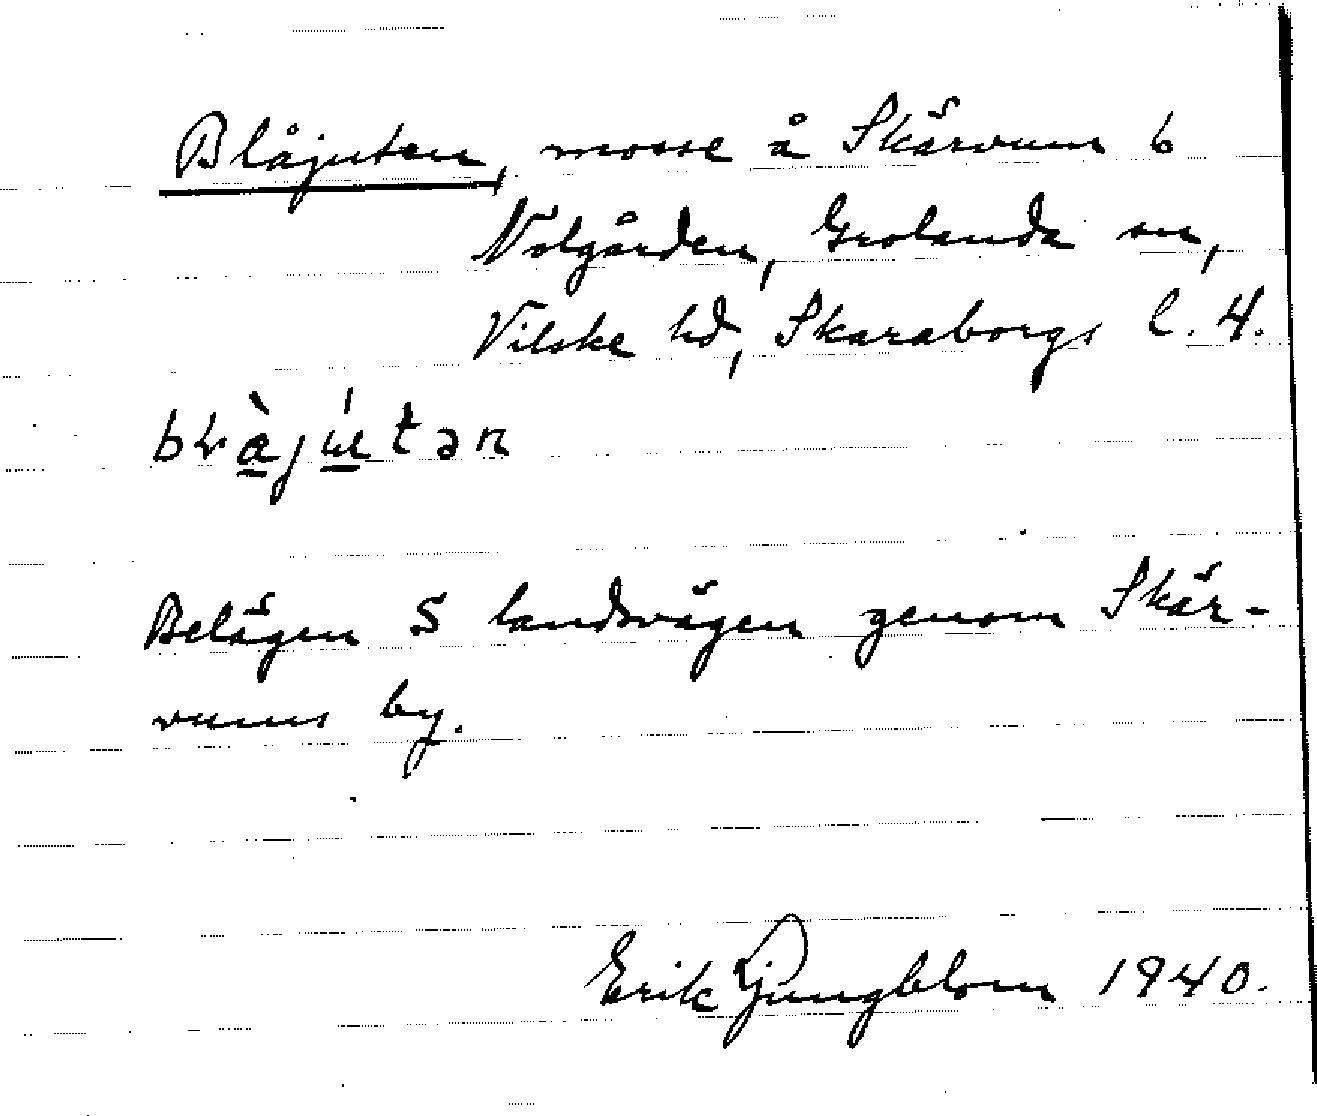 Blåjuten, mosse å Skärvum 6
Nolgården, Grolanda sn,
Vilske hd, Skaraborgs l. 4.
Belägen S landsvägen genom Skär-
vums by.
Erik Ljungblom 1940.